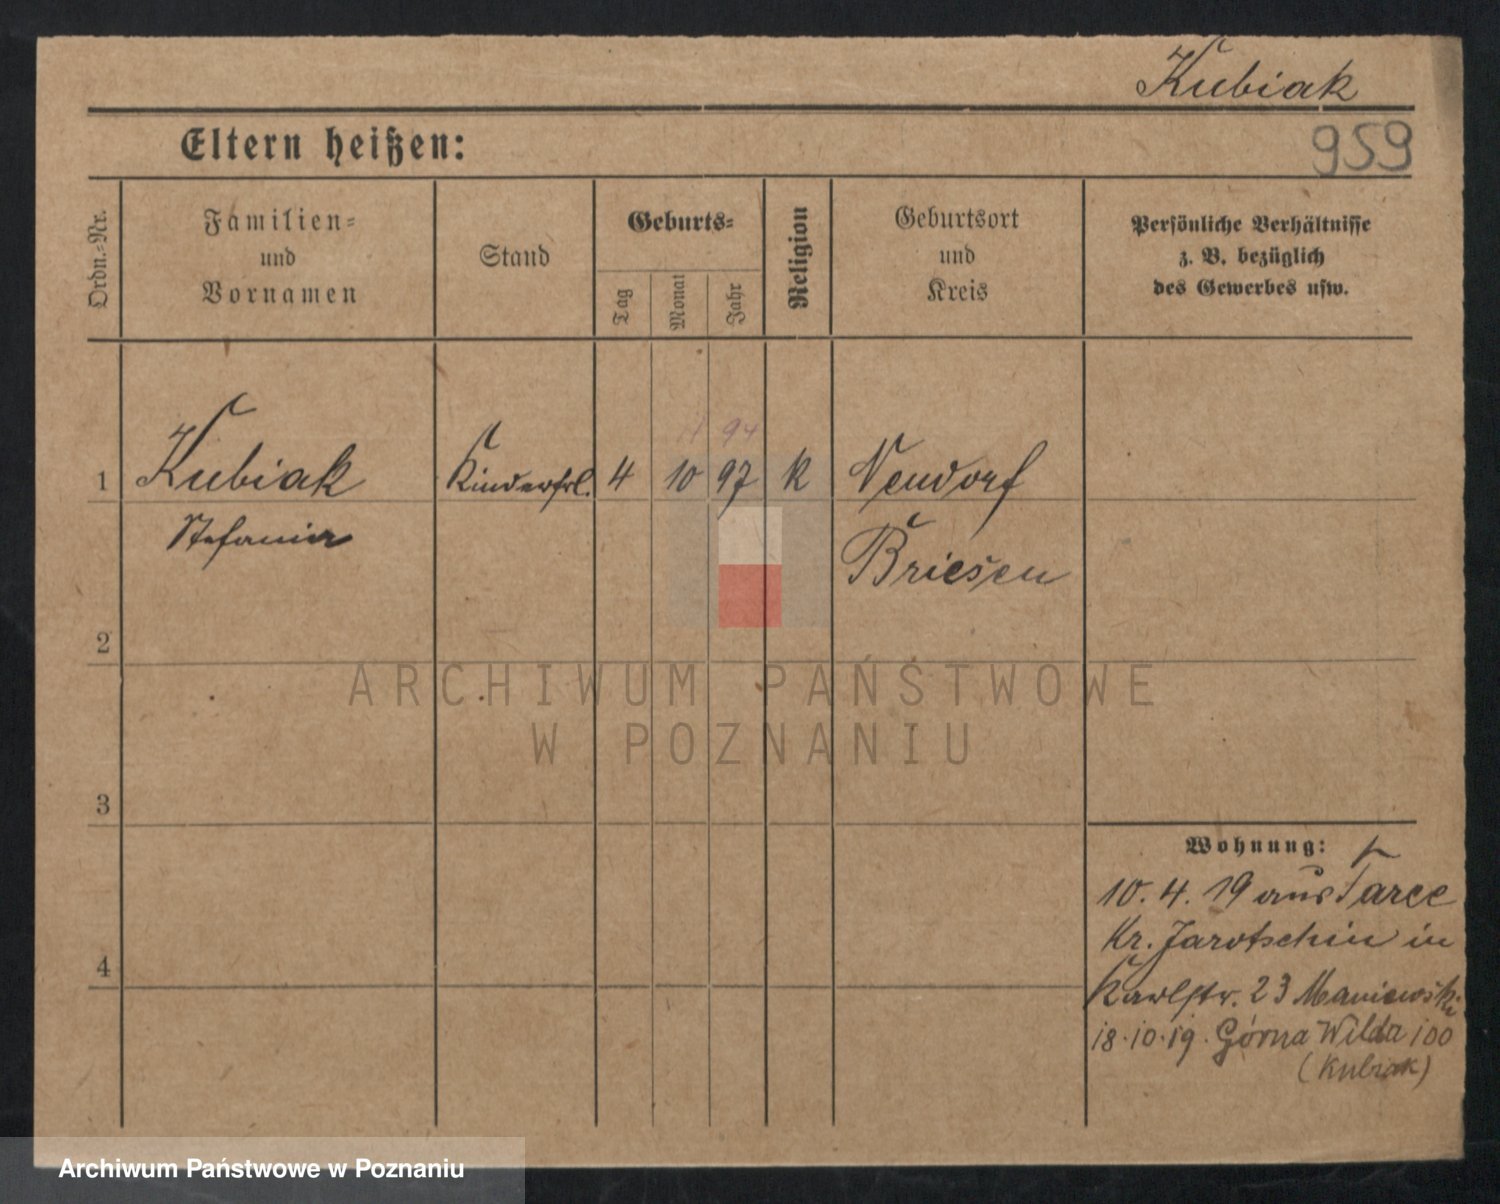 Kubiak
Eltern heißen:
959
Ordn.-Nr.
Familien=
und
Vornamen
Stand
Geburts=
Tag
Monat
Jahr
Religion
Geburtsort
und
Kreis
Persönliche Verhältnisse
z. B. bezüglich
des Gewerbes usw.
94
1 Kubiak Kinderfrl. 4 10 97 K Neudorf
Stefania Briesen
2
ARCHIWUM PAŃSTWOWE
W POZNANIU
3
Wohnung:
10. 4. 19 aus Tarce
Kr. Jarotschin in
4
Karlstr. 23 Maniewski
18.10.19. Górna Wilda 100
(Kubiak)
Archiwum Państwowe w Poznaniu